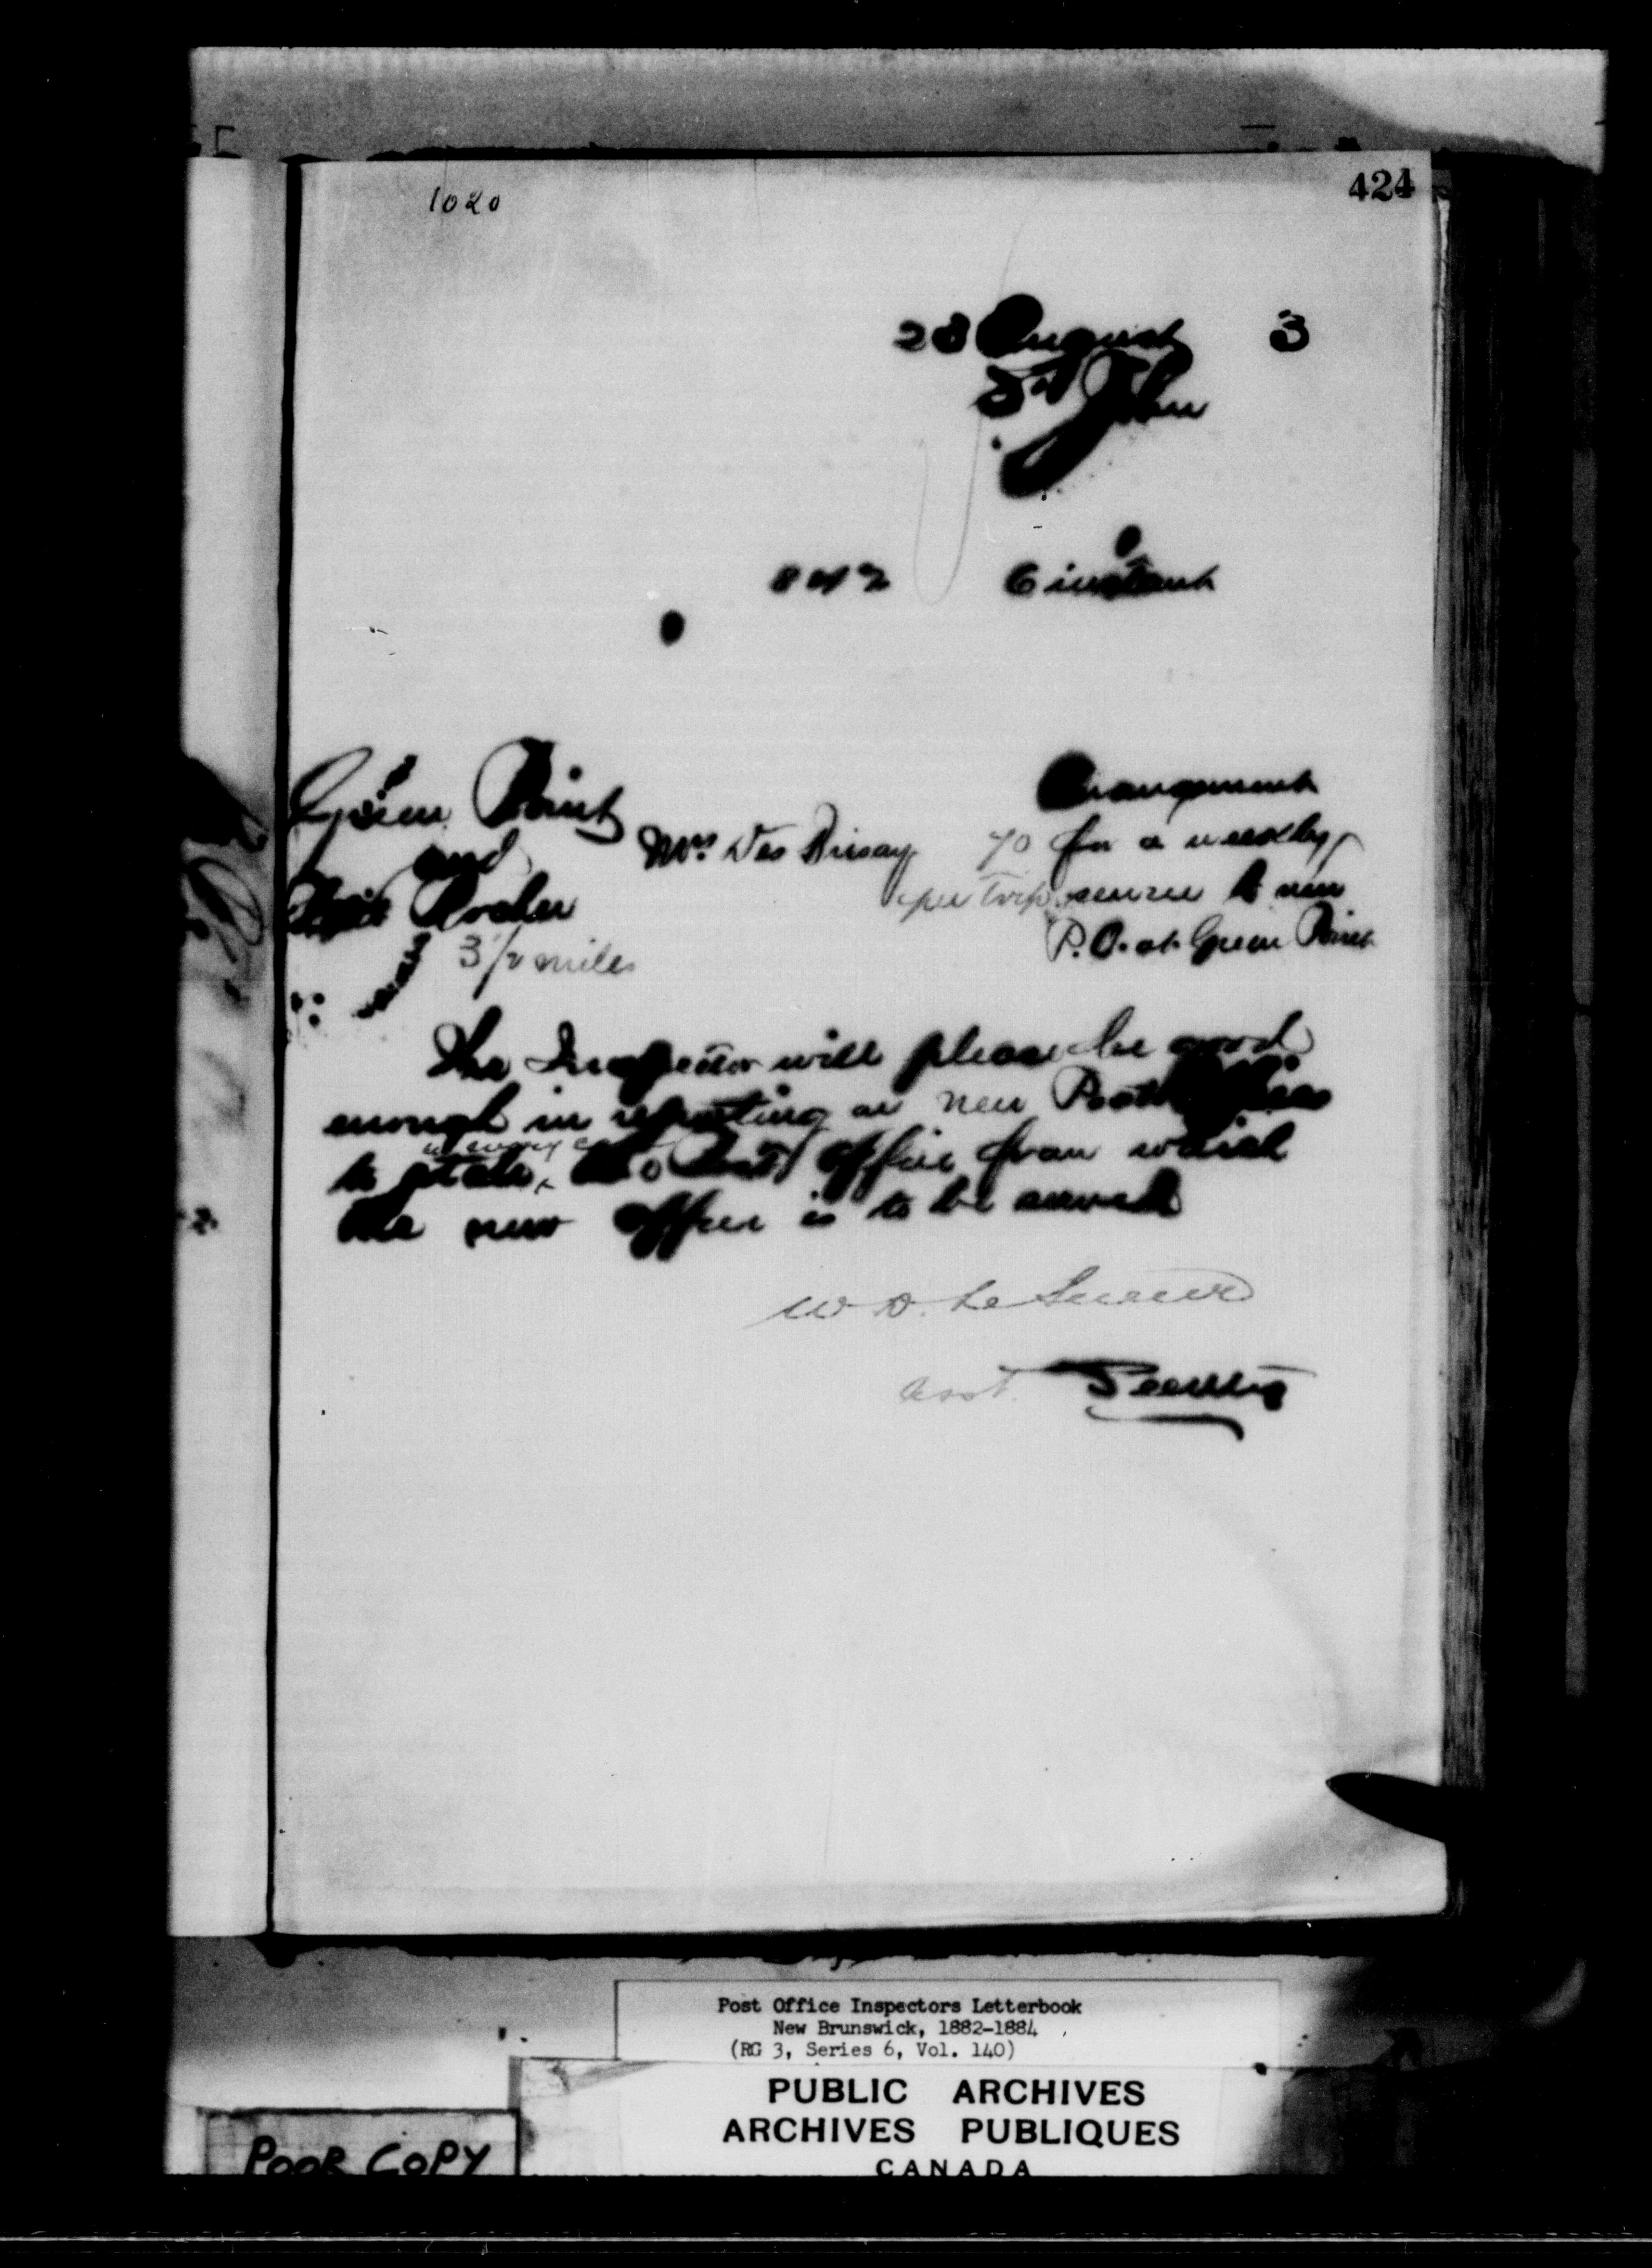 1020
424
28 August 3
St John
6 instant
Green Point
and
Rocher
3 1/2 miles
Mrs Des Brisay
70
per trip
Arrangement
for a weekly
service to new
P.O. at Green Point
The Inspector will please be good
enough in reporting on new Post Offices
in every case
to state, the Post Office from which
the new office is to be served
W D. Le Sueur
asst. Secretary
Post Office Inspectors Letterbook
New Brunswick, 1882-1884
(RG 3, Series 6, Vol. 140)
PUBLIC ARCHIVES
ARCHIVES PUBLIQUES
CANADA
POOR COPY